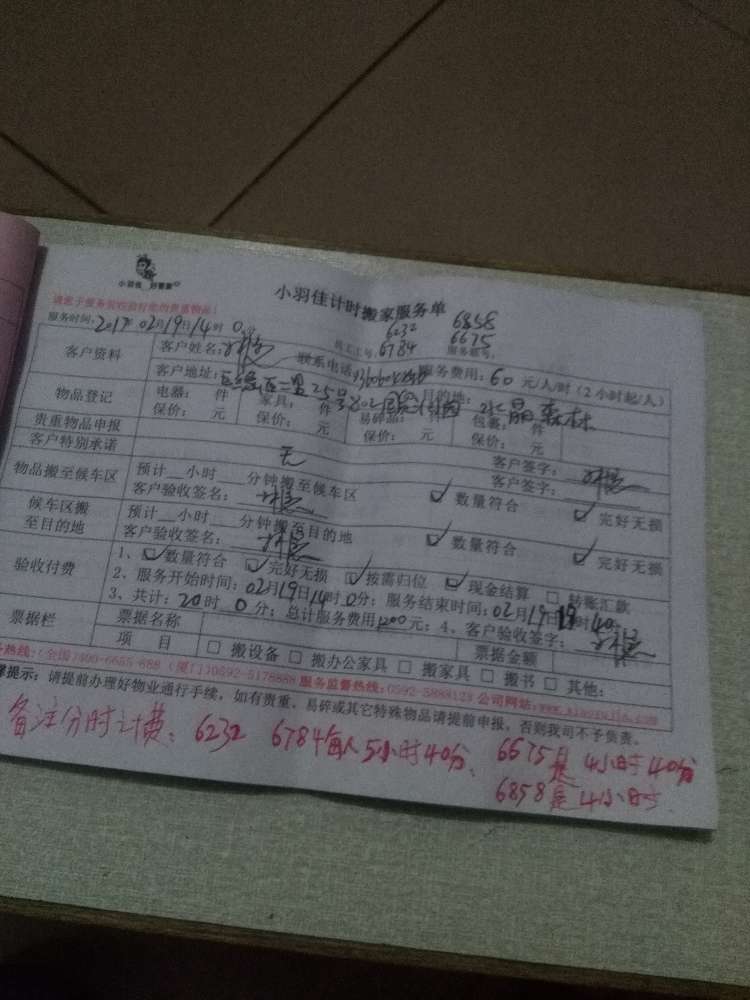 小羽佳 好管家
小羽佳计时搬家服务单
请您于服务前收拾好您的贵重物品!
6232 6858
服务时间:2017年02月19日14时0分
员工工号:6784 服务账号:6675
客户资料
客户姓名: 联系电话: 服务费用:60元/人/时(2小时起/人)
客户地址: 25号 目的地:水晶森林
物品登记
电器: 件 家具: 件 易碎品: 件 包裹: 件
保价: 元 保价: 元 保价: 元 保价: 元
贵重物品申报 客户签字:
客户特别承诺 无 客户签字:
物品搬至候车区
预计 小时 分钟搬至候车区
客户验收签名: ☑数量符合 ☑完好无损
候车区搬至目的地
预计 小时 分钟搬至目的地
客户验收签名: ☑数量符合 ☑完好无损
验收付费
1、☑数量符合 ☑完好无损 ☑按需归位 ☑现金结算 □转账汇款
2、服务开始时间:02月19日14时0分;服务结束时间:02月19日19时40分
3、共计:20时0分;总计服务费用1200元;4、客户验收签字:
票据栏 票据名称 票据金额
项 目 □搬设备 □搬办公家具 □搬家具 □搬书 □其他:
务热线:(全国)400-6655-688 (厦门)0592-5178888 服务监督热线:0592-5888123 公司网站:
提示:请提前办理好物业通行手续,如有贵重、易碎或其它特殊物品请提前申报,否则我司不予负责。
备注分时计费:6232 6784每人5小时40分、6675是4小时40分
6858是4小时